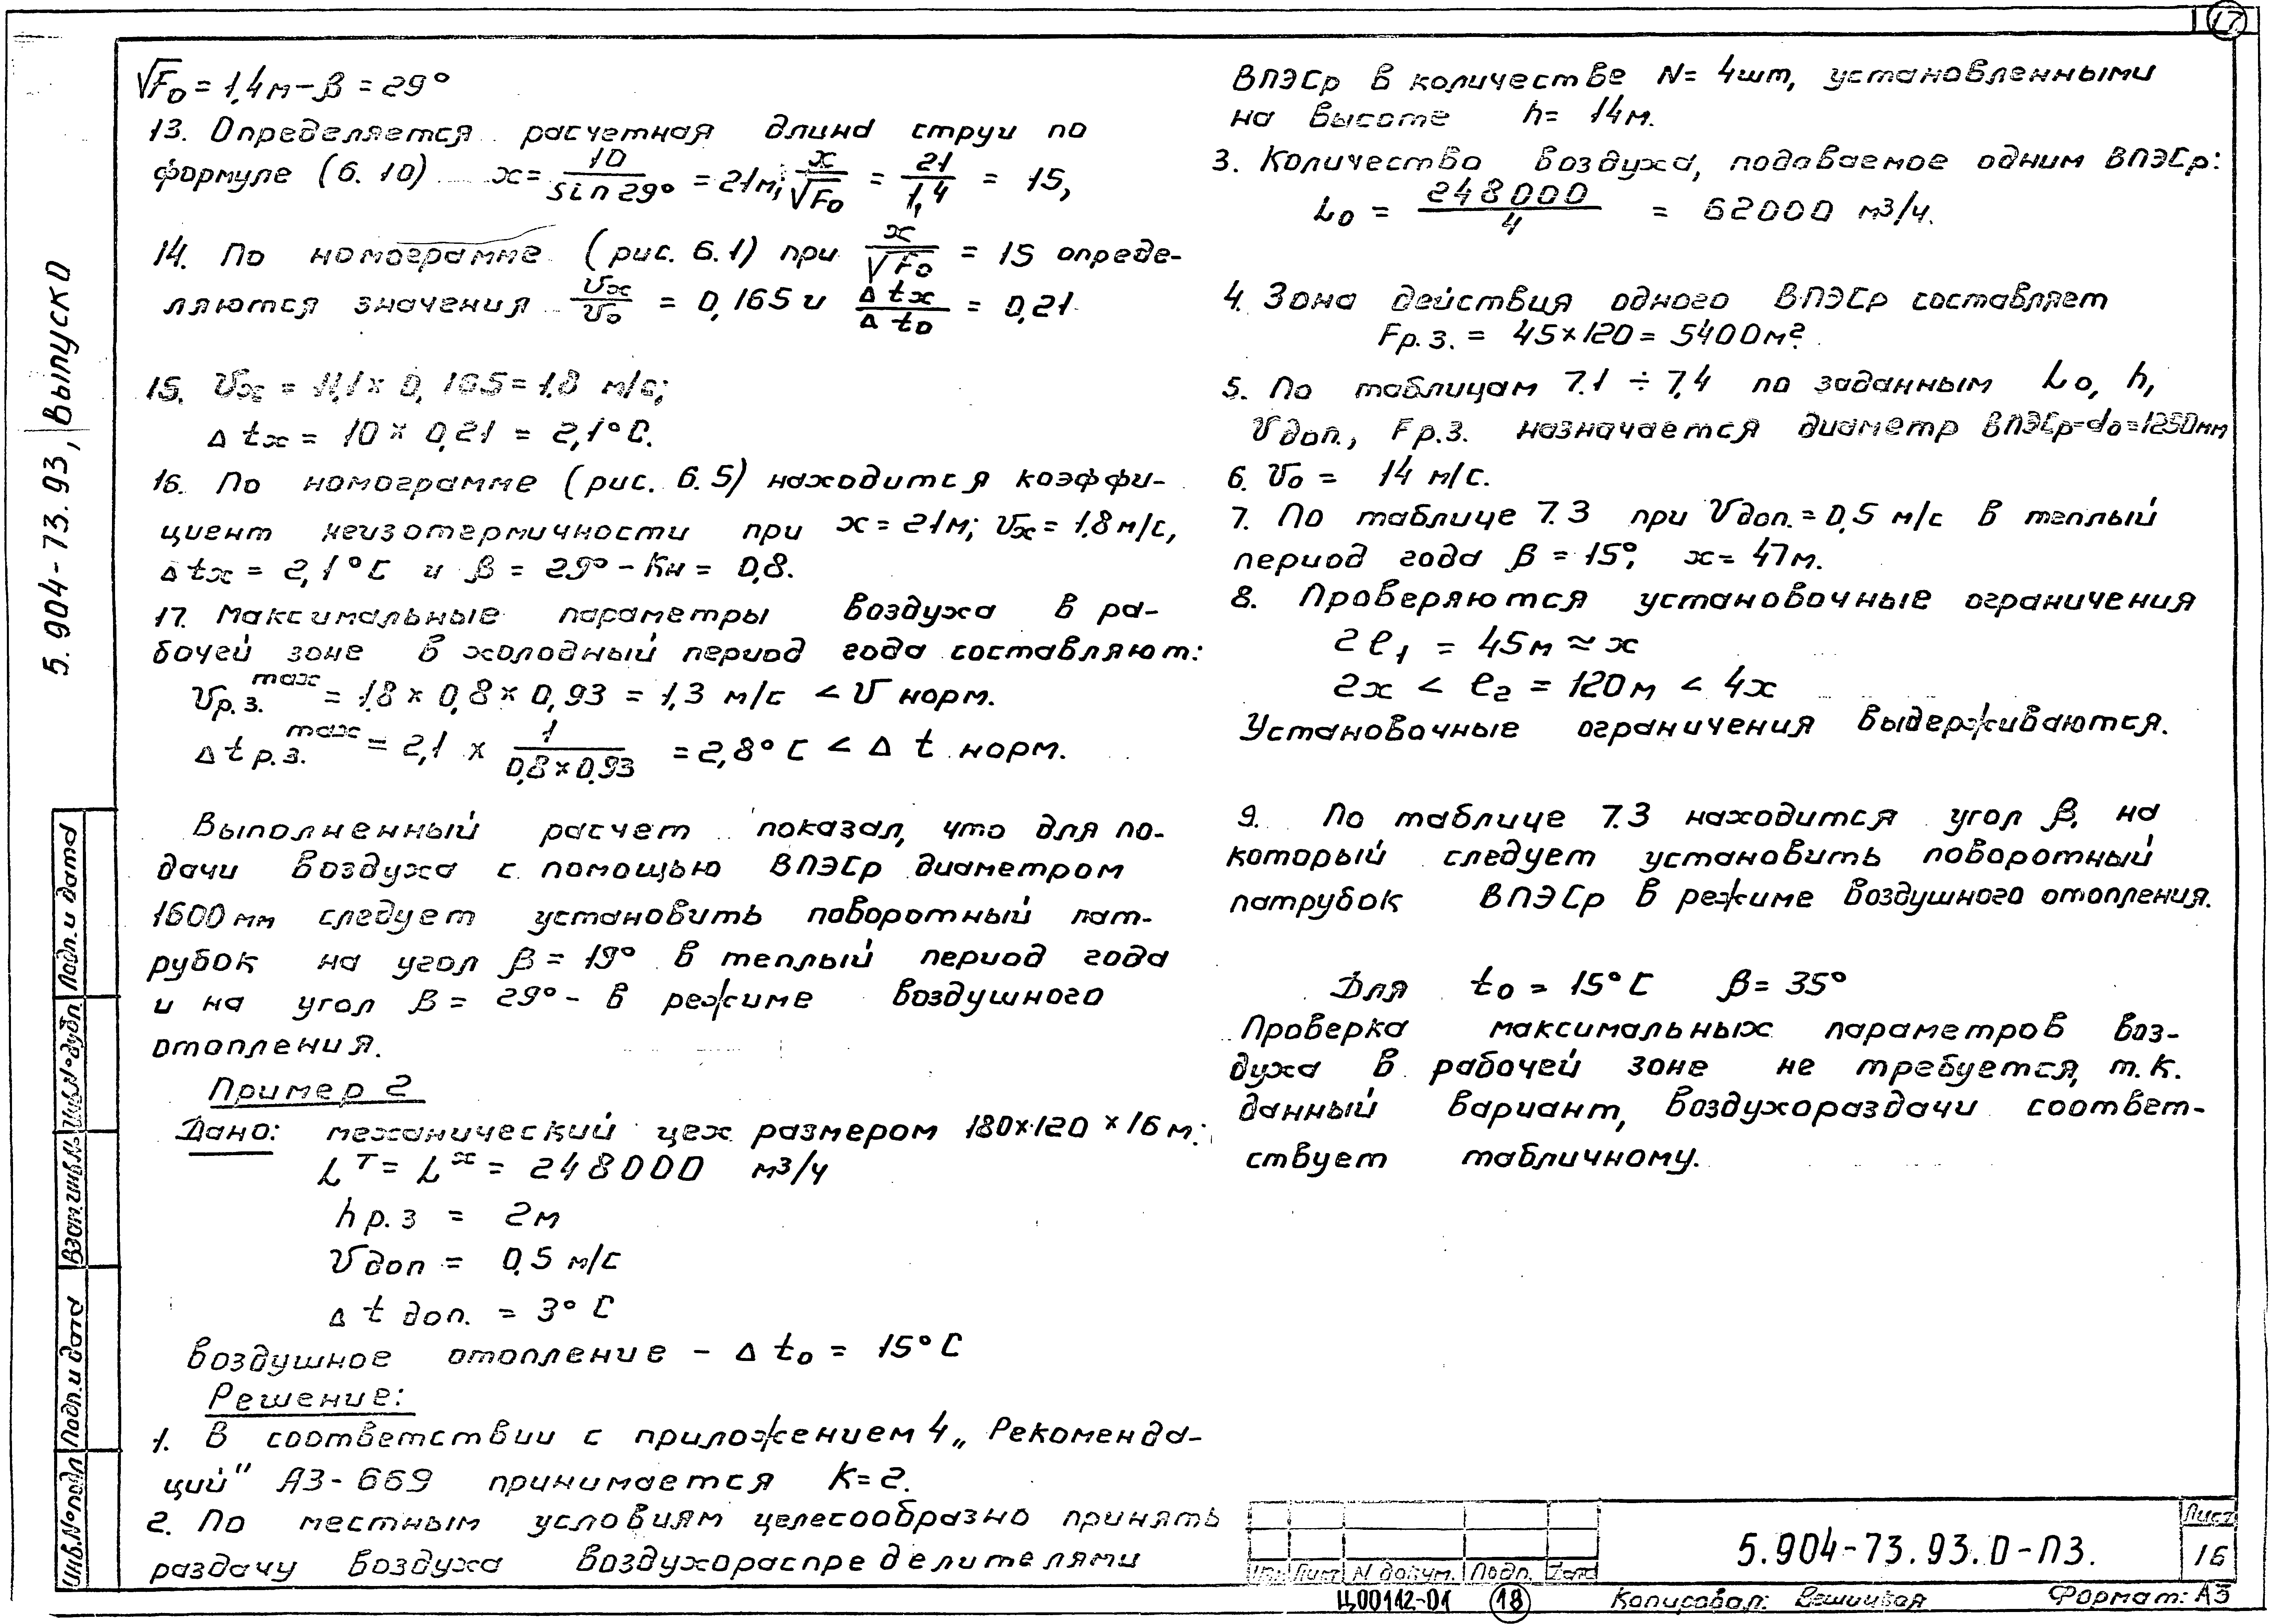 17
5.904-73.93, Выпуск 0
√F₀ = 1,4м - β = 29°
13. Определяется расчетная длина струи по
формуле (6.10) x = 10/sin 29° = 21м; x/√F₀ = 21/1,4 = 15,
14. По номограмме (рис. 6.1) при x/√F₀ = 15 опреде-
ляются значения υx/υ₀ = 0,165 и Δtx/Δt₀ = 0,21
15. υx = 11,1 × 0,165 = 1,8 м/с;
Δtx = 10 × 0,21 = 2,1°С.
16. По номограмме (рис. 6.5) находится коэффи-
циент неизотермичности при x = 21м; υx = 1,8м/с,
Δtx = 2,1°С и β = 29° - Кн = 0,8.
17. Максимальные параметры воздуха в ра-
бочей зоне в холодный период года составляют:
υр.з.max = 1,8 × 0,8 × 0,93 = 1,3 м/с < υ норм.
Δtр.з.max = 2,1 × 1/(0,8×0,93) = 2,8°С < Δt норм.
Выполненный расчет показал, что для по-
дачи воздуха с помощью ВПЭСр диаметром
1600мм следует установить поворотный пат-
рубок на угол β = 19° в теплый период года
и на угол β = 29° - в режиме воздушного
отопления.
Пример 2
Дано: механический цех размером 180×120×16м:
Lᵀ = Lˣ = 248000 м³/ч
hр.з = 2м
υдоп = 0,5 м/с
Δt доп. = 3°С
воздушное отопление - Δt₀ = 15°С
Решение:
1. В соответствии с приложением 4 „Рекоменда-
ций" А3-669 принимается К=2.
2. По местным условиям целесообразно принять
раздачу воздуха воздухораспределителями
ВПЭСр в количестве N = 4шт, установленными
на высоте h = 14м.
3. Количество воздуха, подаваемое одним ВПЭСр:
L₀ = 248000/4 = 62000 м³/ч.
4. Зона действия одного ВПЭСр составляет
Fр.з. = 45×120 = 5400м².
5. По таблицам 7.1 ÷ 7,4 по заданным L₀, h,
υдоп., Fр.з. назначается диаметр ВПЭСр-d₀=1250мм
6. υ₀ = 14 м/с.
7. По таблице 7.3 при υдоп. = 0,5 м/с в теплый
период года β = 15°, x = 47м.
8. Проверяются установочные ограничения
2ℓ₁ = 45м ≈ x
2x < ℓ₂ = 120м < 4x
Установочные ограничения выдерживаются.
9. По таблице 7.3 находится угол β, на
который следует установить поворотный
патрубок ВПЭСр в режиме воздушного отопления.
Для t₀ = 15°С β = 35°
Проверка максимальных параметров воз-
духа в рабочей зоне не требуется, т.к.
данный вариант, воздухораздачи соответ-
ствует табличному.
Инв.№ подл. Подп. и дата Взам. инв.№ Инв.№ дубл. Подп. и дата
Изм. Лист N докум. Подп. Дата
5.904-73.93.0-ПЗ.
Лист
16
Ц00112-01 18 Копировал: Формат: А3